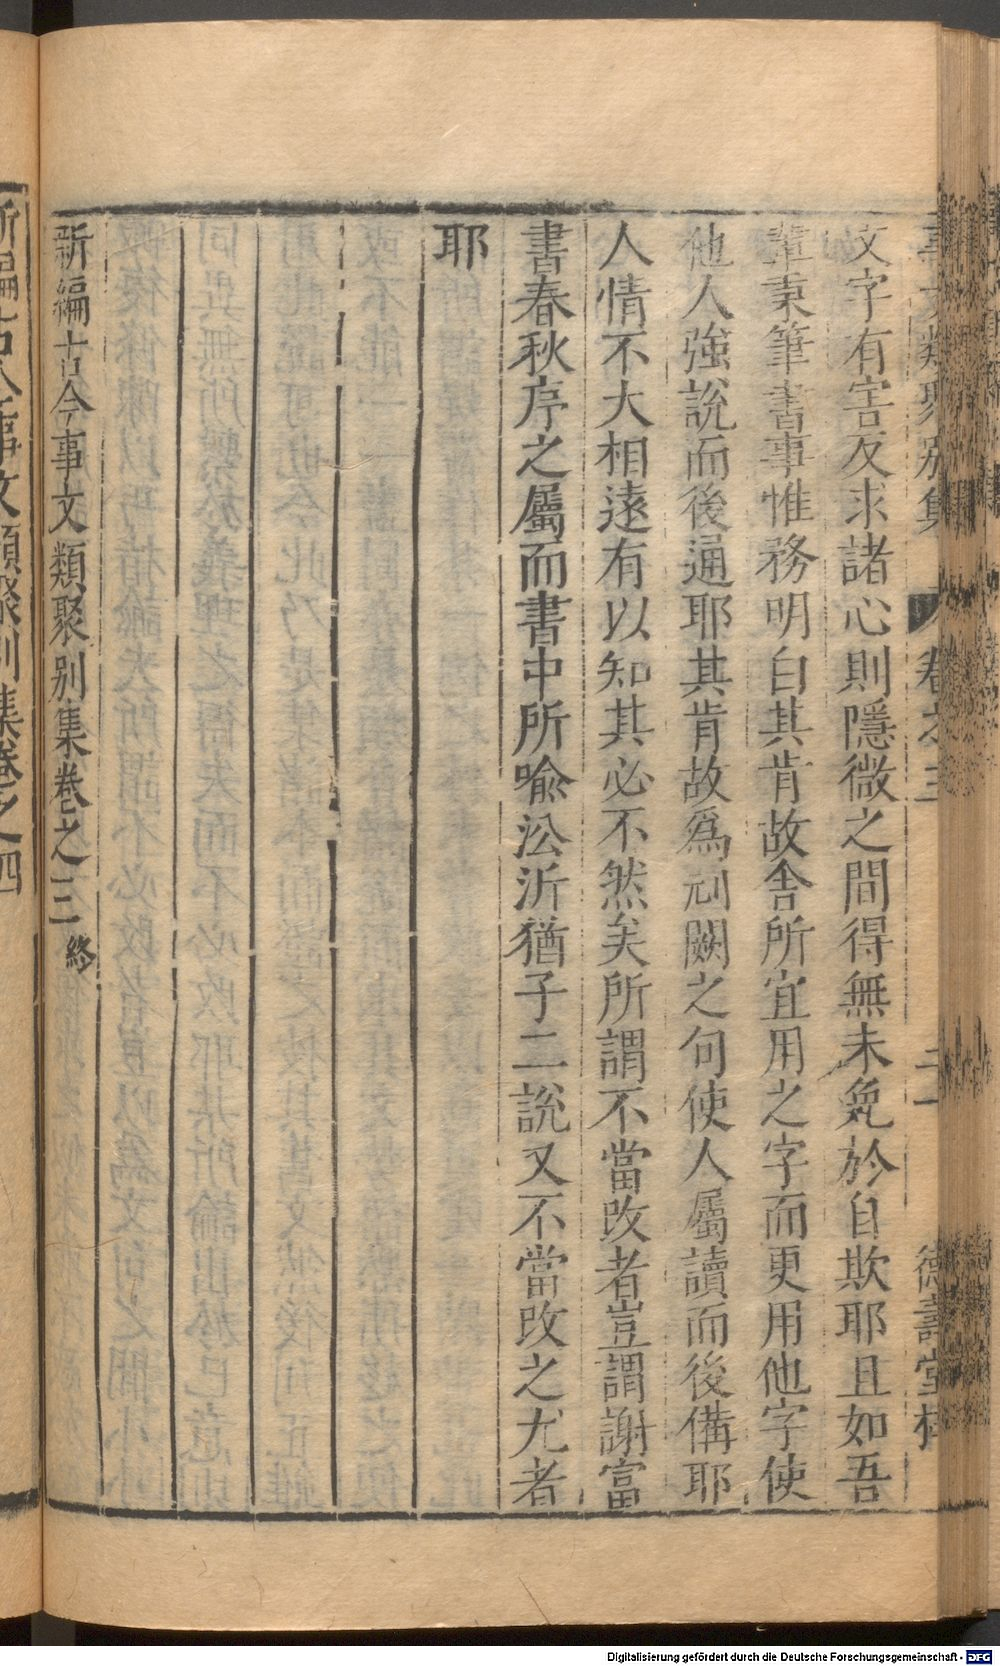 事文類聚別集 卷之三 二十 德壽堂梓
文字有害反求諸心則隱微之間得無未免於自欺耶且如吾
輩秉筆書事惟務明白其肯故舍所宜用之字而更用他字使
他人強說而後通耶其肯故爲刓闕之句使人屬讀而後備耶
人情不大相遠有以知其必不然矣所謂不當改者豈謂謝富
書春秋序之屬而書中所喻沿沂猶子二說又不當改之尤者
耶
新編古今事文類聚別集卷之三 終
新編古今事文類聚別集卷之四
Digitalisierung gefördert durch die Deutsche Forschungsgemeinschaft - DFG